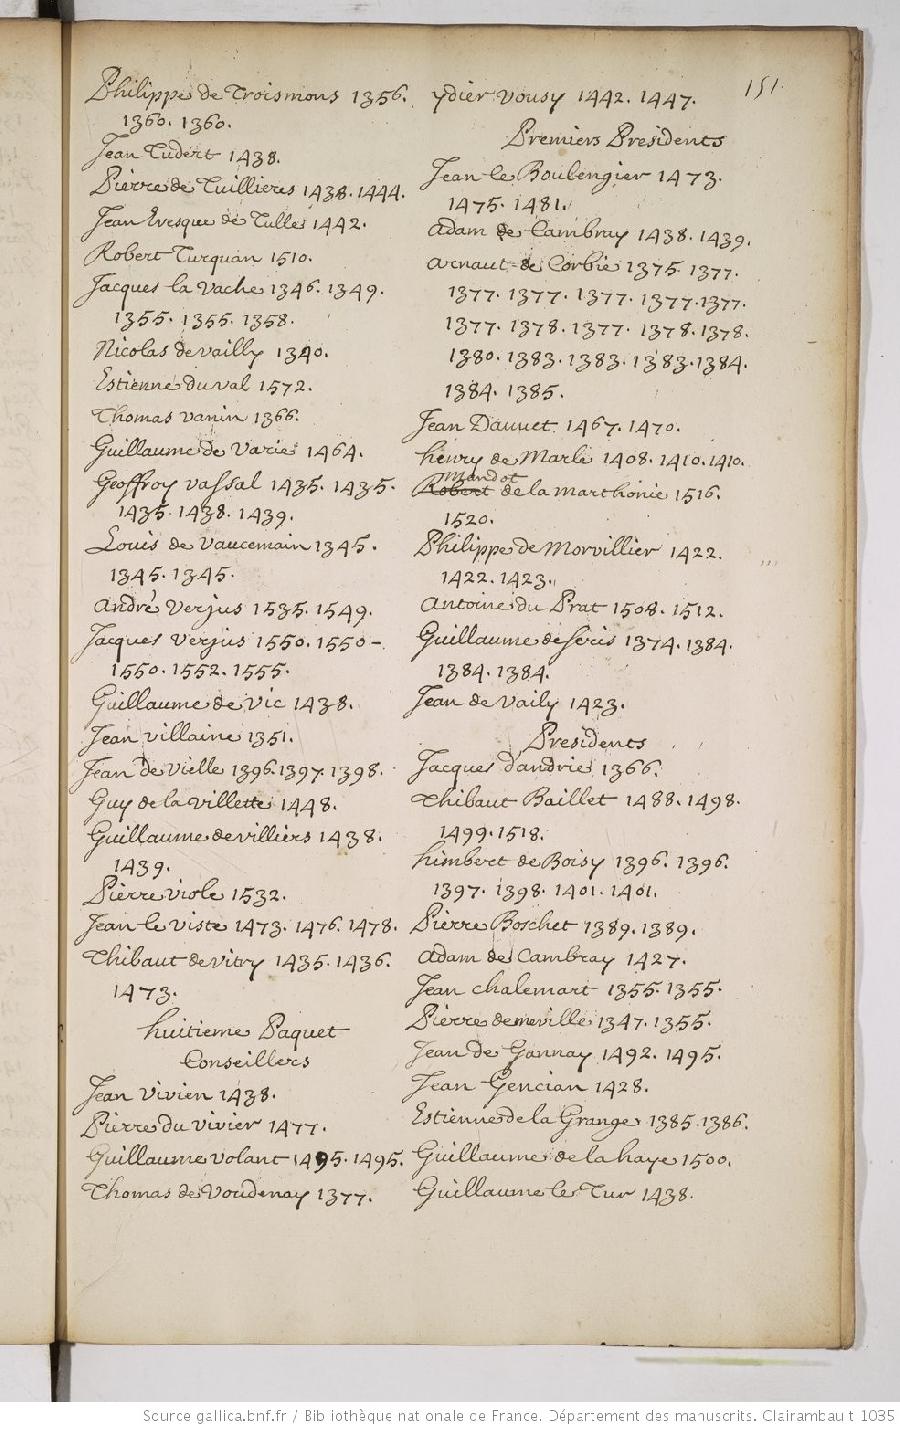 151
Philippe de Troismons 1356.
1360. 1360.
Jean Tudert 1438.
Pierre de Tuillieres 1438. 1444.
Jean Evesque de Tulle 1442.
Robert Turquan 1510.
Jacques la vache 1346. 1349.
1355. 1355. 1358.
Nicolas de vailly 1340.
Estienne du val 1572.
Thomas vanin 1366.
Guillaume de Varie 1464.
Geoffroy vassal 1435. 1435.
1435. 1438. 1439.
Louis de vaucemain 1345.
1345. 1345.
André verjus 1535. 1549.
Jacques verjus 1550. 1550 -
1550. 1552. 1555.
Guillaume de vic 1438.
Jean villaine 1351.
Jean de vielle 1396. 1397. 1398.
Guy de la villette 1448.
Guillaume de villiers 1438.
1439.
Pierre viole 1532.
Jean le viste 1473. 1476. 1478.
Thibaut de vitry 1435. 1436.
1473.
huitieme Paquet
Conseillers
Jean vivien 1438.
Pierre du vivier 1477.
Guillaume volant 1495. 1495.
Thomas de voudenay 1377.
ydier vousy 1442. 1447.
Premiers Presidents
Jean le Boulengier 1473.
1475. 1481.
Adam de Cambray 1438. 1439.
arnaut de Corbie 1375. 1377.
1377. 1377. 1377. 1377. 1377.
1377. 1378. 1377. 1378. 1378.
1380. 1383. 1383. 1383. 1384.
1384. 1385.
Jean Dauvet 1467. 1470.
henry de Marle 1408. 1410. 1410.
mandot
Robert de la marthonie 1516.
1520.
Philippe de Morvillier 1422.
1422. 1423.
Antoine du Prat 1508. 1512.
Guillaume de seris 1374. 1384.
1384. 1384.
Jean de vaily 1423.
Presidents
Jacques dandrie 1366.
Thibaut Baillet 1488. 1498.
1499. 1518.
himbert de Boisy 1396. 1396.
1397. 1398. 1401. 1401.
Pierre Boschet 1389. 1389.
Adam de Cambray 1427.
Jean chalemart 1355. 1355.
Pierre demeville 1347. 1355.
Jean de Gannay 1492. 1495.
Jean Gencian 1428.
Estienne de la Grange 1385. 1386.
Guillaume de la haye 1500.
Guillaume le Tur 1438.
Source gallica.bnf.fr / Bibliothèque nationale de France. Département des manuscrits. Clairambault 1035